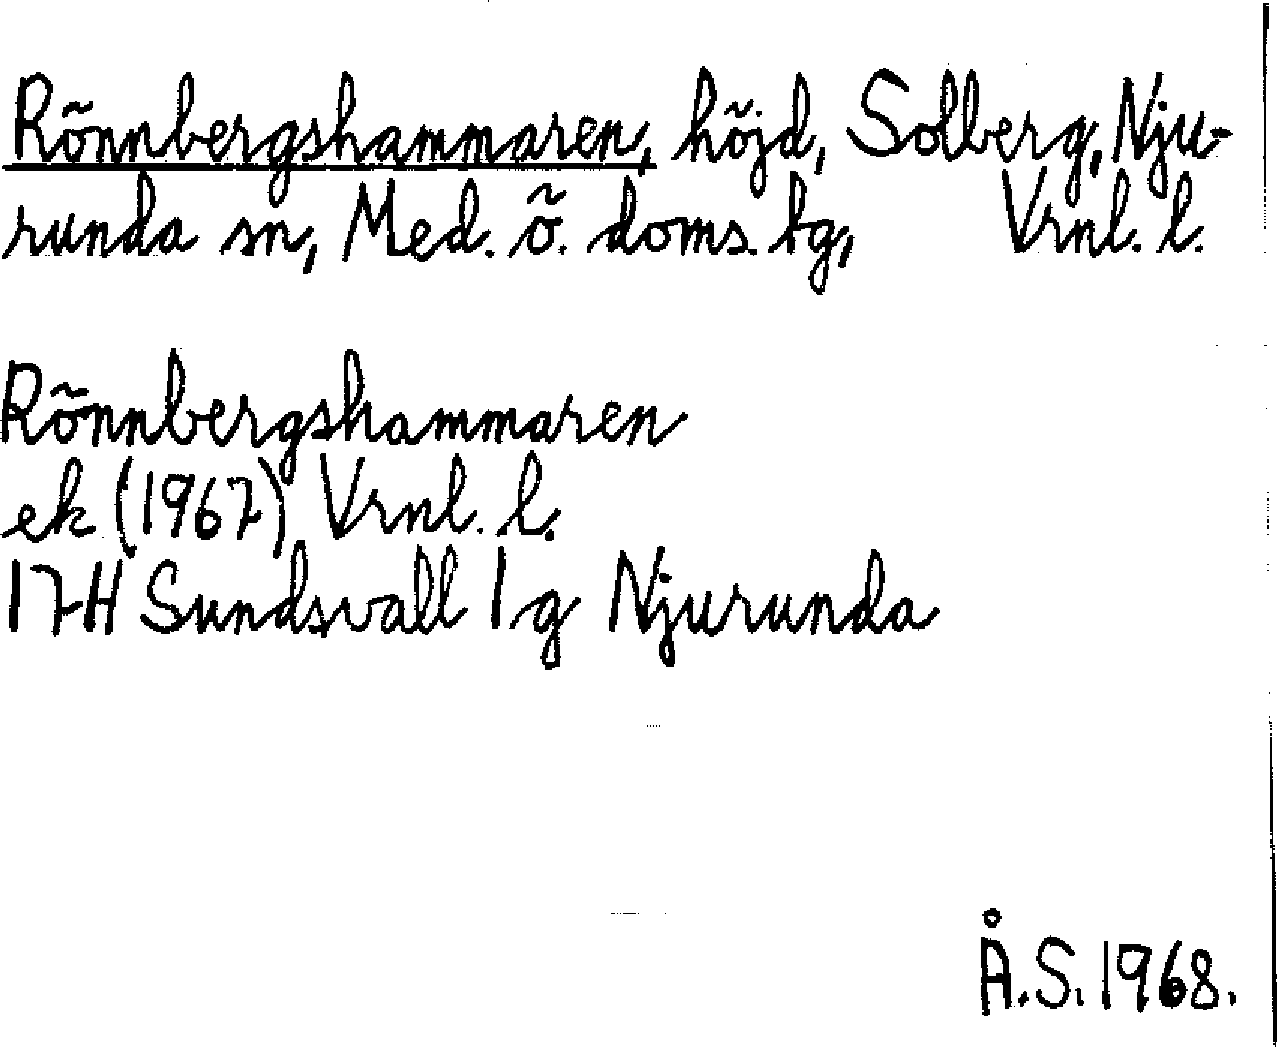 Rönnbergshammaren, höjd, Solberg, Nju-
runda sn, Med. ö. doms. tg, Vrnl. l.
Rönnbergshammaren
ek (1967) Vrnl. l.
17H Sundsvall 1 g Njurunda
Å.S. 1968.